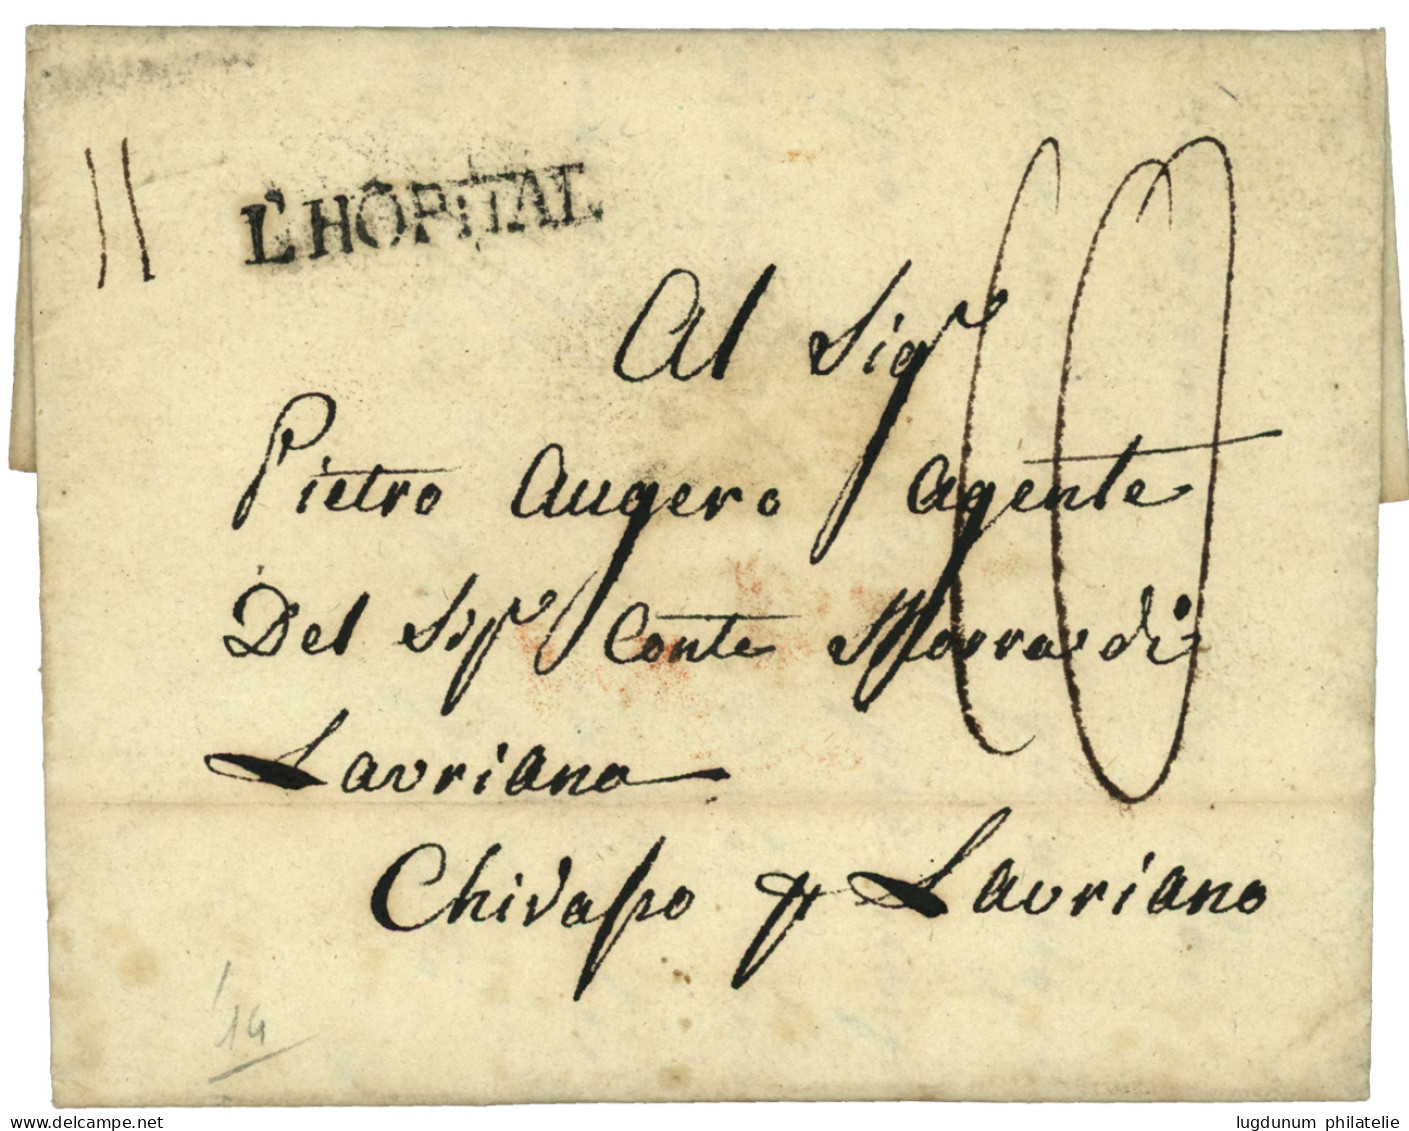 11
L'HÔPITAL
10
Al Sigr
Pietro Augero Agente
Del Sigr Conte Morra di
Lavriano
Chivasso pr Lavriano
14
www.delcampe.net
lugdunum philatelie